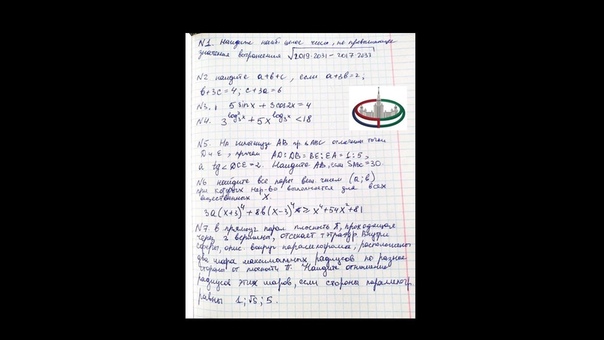 N1. Найдите наиб. целое число, не превосходящее
значения выражения √2019·2031-2017·2033
N2 найдите a+b+c, если a+3b=2,
b+3c=4; c+3a=6
N3. 5 sinx + 3cos2x = 4
N4. 3^log₃²x + 5x^log₃x < 18
N5. На гипотенузе AB пр. △ABC отмечены точки
D и E, причём AD:DB = BE:EA = 1:5,
а tg∠DCE = 2. Найдите AB, если SABC = 30.
N6 найдите все пары вещ. чисел (a; b)
при которых нер-во выполняется для всех
вещественных x.
3a(x+3)⁴ + 8b(x-3)⁴ ≥ x⁴+54x²+81
N7. В прямоуг. парал. плоскость П, проходящая
через 3 вершины, отсекает тетраэдр. Внутри
сферы, опис. вокруг параллелепипеда, расположены
два шара максимальных радиусов по разные
стороны от плоскости П. Найдите отношение
радиусов этих шаров, если стороны
равны 1; √3; 5.